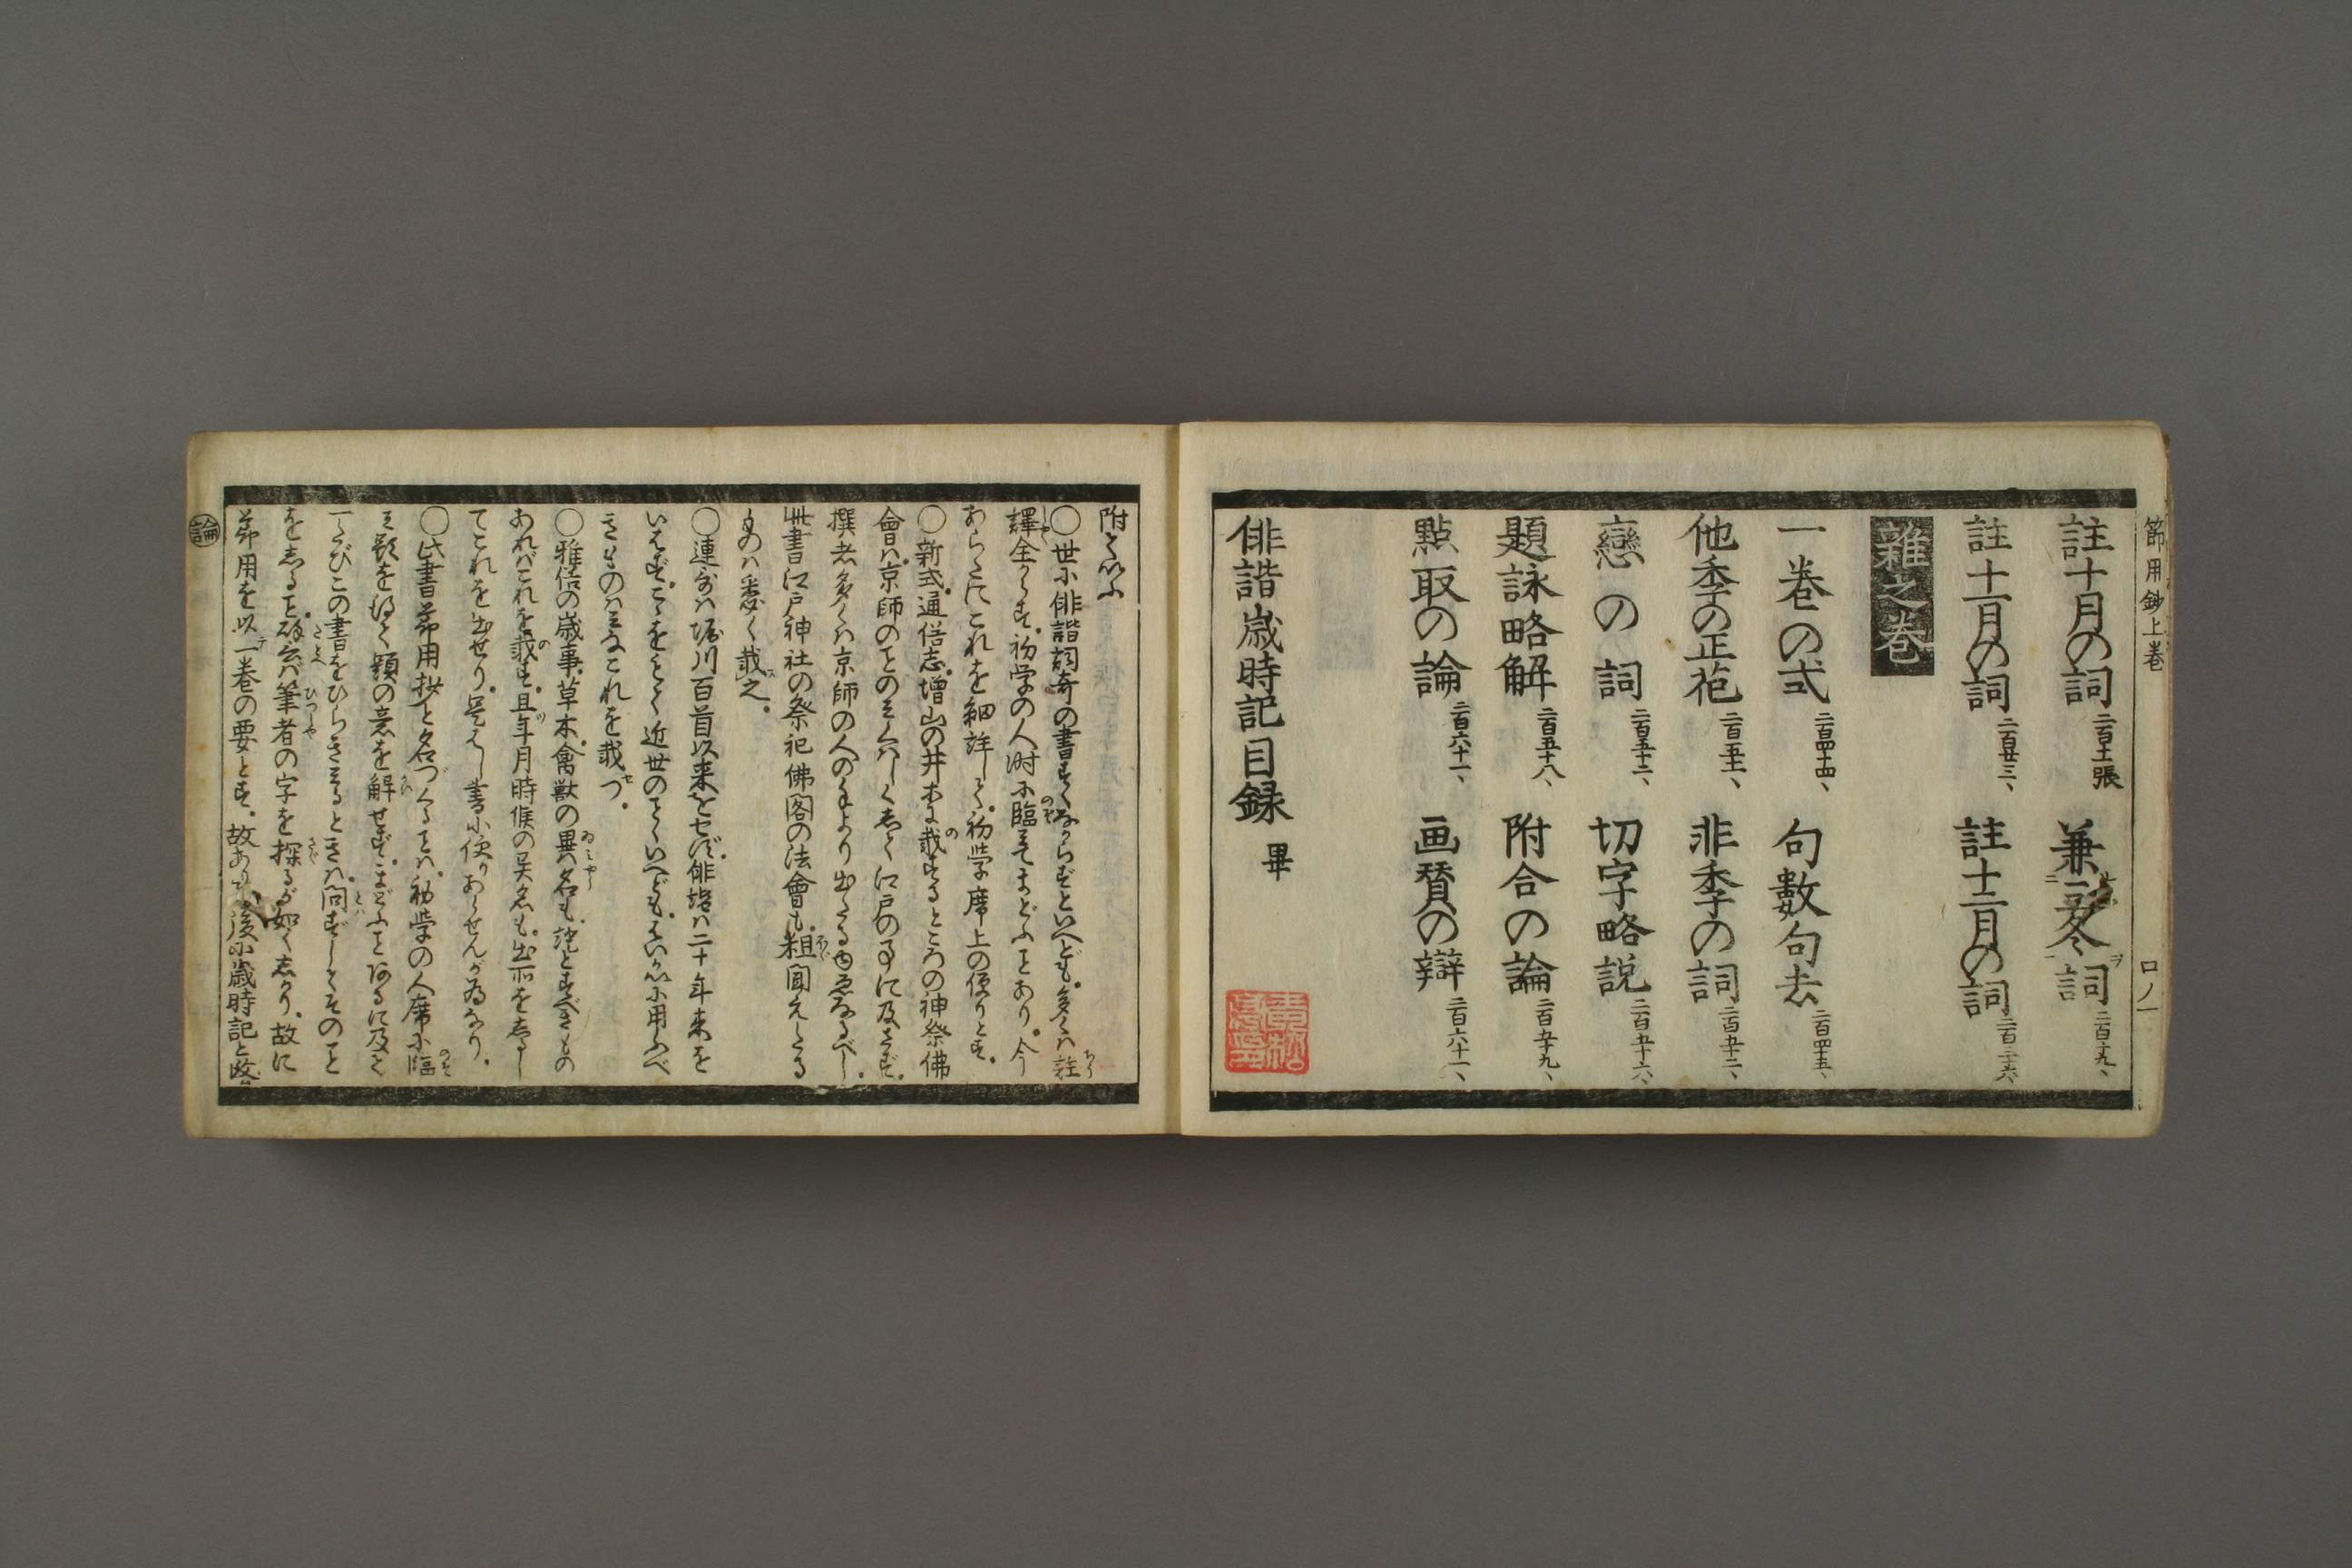 節用鈔上巻
口ノ一
註十月の詞 二百十一張 兼三冬ヲ詞 二百十九、
註十一月の詞 二百廿三、 註十二月の詞 二百三十六、
雑之巻
一巻の式 二百四十四、 句數句去 二百四十五、
他季の正花 二百五十一、 非季の詞 二百五十二、
戀の詞 二百五十二、 切字略説 二百五十六、
題詠略解 二百五十八、 附合の論 二百五十九、
點取の論 二百六十一、 画賛の辯 二百六十一、
俳諧歳時記目録 畢
附ていふ
○世に俳諧詞寄の書すくなからずといへども。多くは註
譯全からず。初学の人時に臨みてまどふことあり。今
あらたにこれを細詳して。初学席上の便りとす。
○新式。通俗志。増山の井等に載するところの神祭佛
會は。京師のことのみくはしくして江戸の事に及ばず。
撰者多くは京師の人の手より出たるゆゑなるべし。
此書江戸神社の祭祀佛閣の法會も。粗聞えたる
ものは悉く載之。
○連歌は堀川百首以来をとせず。俳諧は二十年来を
いはず。こゝをもて近世のことゝいへども。はいかいに用ふべ
きものはみなこれを載つ。
○雅俗の歳事。草木。禽獣の異名も。詫とすべきもの
あればこれを載す。且年月時候の異名も。出所を志るし
てこれを出せり。是はし書に便りあらせんが為なり。
○此書節用抄と名づくることは。初学の人席に臨
み題を得て題の意を解せず。まどふことあるに及びて
一たびこの書をひらきみるときは。問ずしてそのこと
を志ること。譬ば筆者の字を探るが如く志かり。故に
節用を以一巻の要とす。故ありて後に歳時記と改
論